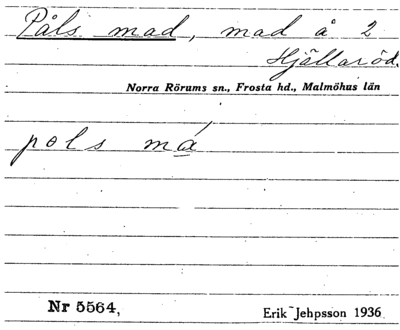 Påls mad, mad å 2
Hjällaröd.
Norra Rörums sn., Frosta hd., Malmöhus län
pols má
Nr 5564,
Erik Jehpsson 1936